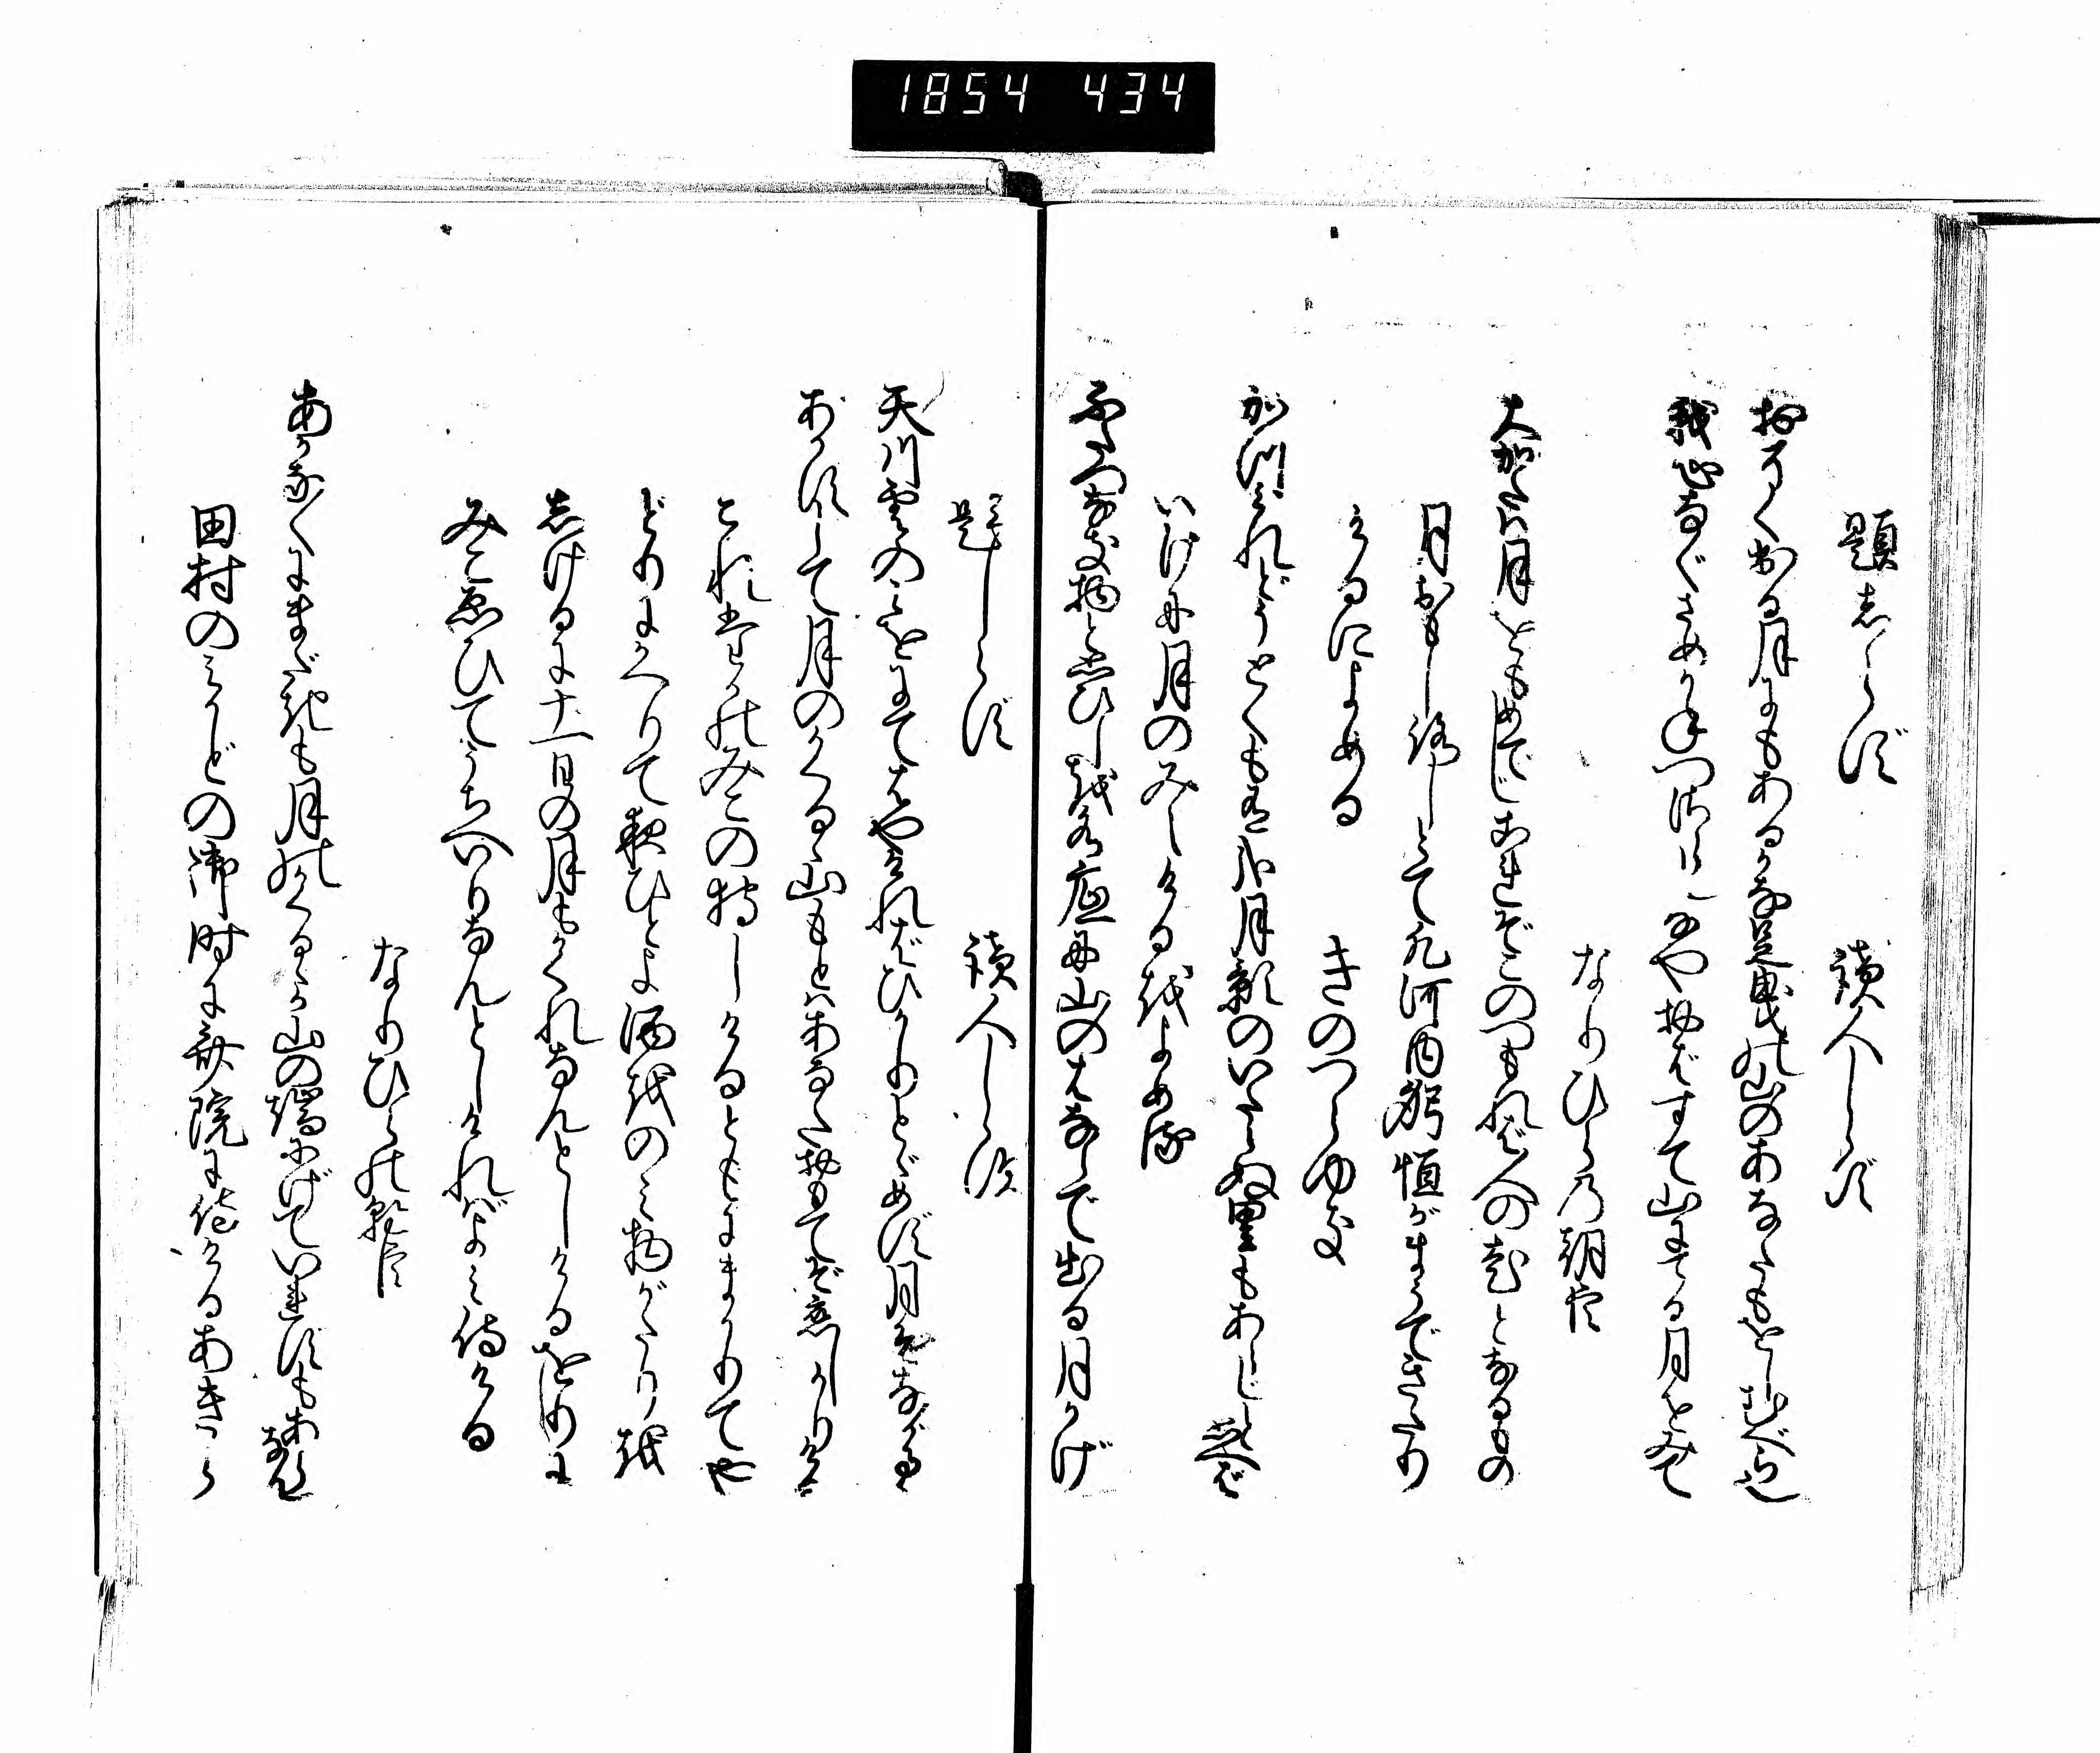 1854 434
題しらず 読人しらず
おそく出る月にもあるかな足曳の山のあなたもをしむべら也
我心なぐさめかねつさらしなやおばすて山にてる月をみて
なりひらの朝臣
大かたは月をもめでじこれぞこのつもれば人の老となるもの
月おもしろしとて凡河内躬恒がまうできたり
けるによめる
きのつらゆき
かつみれどうとくも有か月影のいたらぬ里もあらじと思へば
いけに月のみえけるをよめる
ふたつなき物と思ひしを水底に山のはならで出る月かげ
題しらず 読人しらず
天川雲のみをにてはやければひかりとゞめず月ぞながるゝ
あかずして月のかくるゝ山もとはあなたおもてぞ恋しかりける
これたかのみこの狩しけるともにまかりてや
どりにかへりて夜ひとよ酒をのみ物がたりを
しけるに十一日の月もかくれなんとしけるをりに
みこゑひてうちへいりなんとしければよみ侍ける
なりひらの朝臣
あかなくにまだきも月のかくるゝか山の端にげていれずもあらなん
田村のみかどの御時に斎院に侍けるあきら